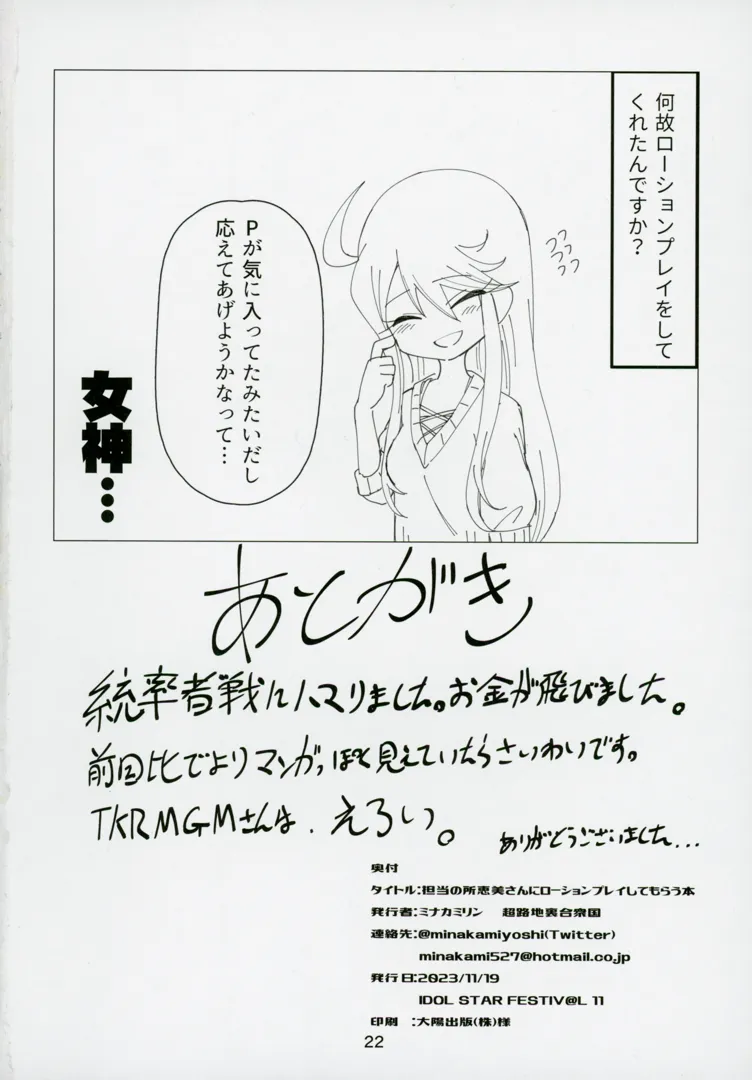 何故ローションプレイをして
くれたんですか？
フフフフ
Pが気に入ってたみたいだし
応えてあげようかなって…
女神…
あとがき
統率者戦にハマりました。お金が飛びました。
前回比でよりマンガっぽく見えていたらさいわいです。
TKRMGMさんは、えろい。
ありがとうございました...
奥付
タイトル:担当の所恵美さんにローションプレイしてもらう本
発行者:ミナカミリン 超路地裏合衆国
連絡先:@minakamiyoshi(Twitter)
minakami527@hotmail.co.jp
発行日:2023/11/19
IDOL STAR FESTIV@L 11
印刷 :大陽出版(株)様
22